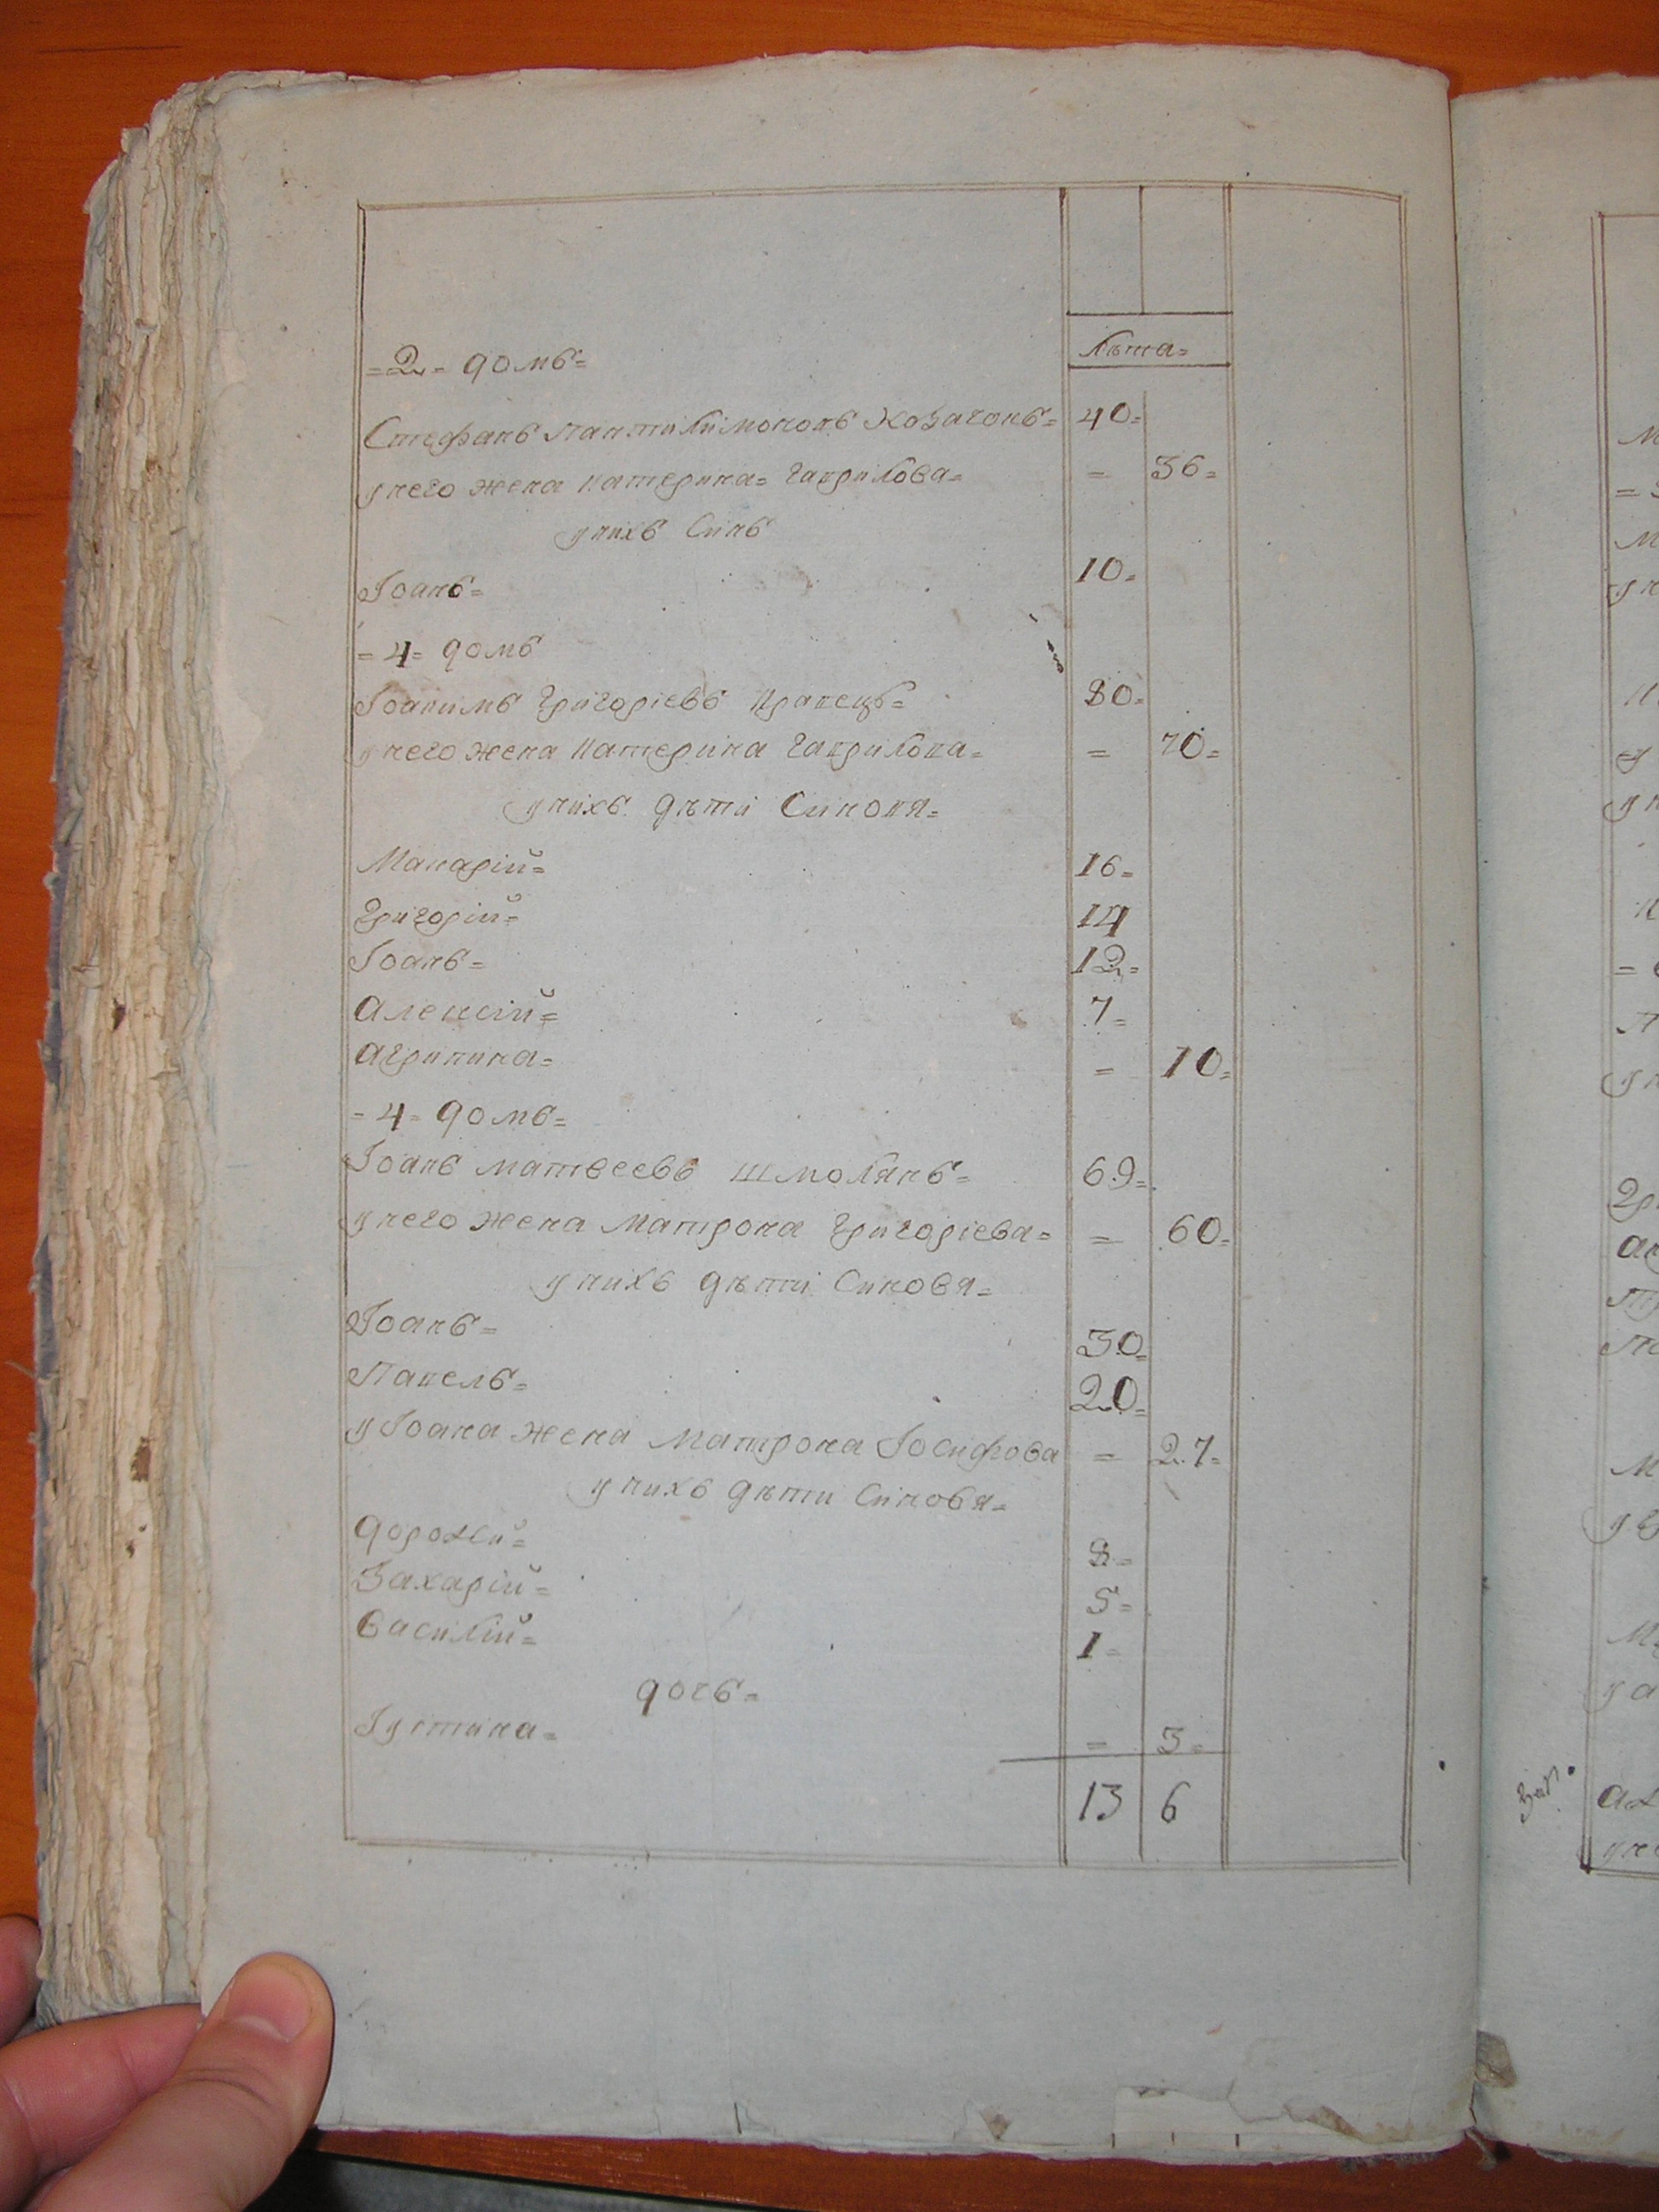 лѣта=
=2= домъ=
Стефанъ Пантилимоновъ Козачокъ= 40=
у него жена Катерина= Гаврилова= = 36=
у нихъ Синъ
Іоанъ= 10=
=4= домъ
Іоакимъ Григоріевъ Кравецъ= 80=
у него жена Катерина Гаврилова= = 70=
у нихъ дѣти Синовя=
Макарій= 16=
Григорій= 14
Іоанъ= 12=
Алексій= 7=
Агрипина= = 10=
=4= домъ=
Іоанъ Матвеевъ Шмолякъ= 69=
у него жена Матрона Григоріева= = 60=
у нихъ дѣти Синовя=
Іоанъ= 30=
Павелъ= 20=
у Іоана жена Матрона Іосифова = 27=
у нихъ дѣти Синовя=
Дорофей= 8=
Захарій= 5=
Василій= 1=
дочь=
Іустина= = 3=
13 6